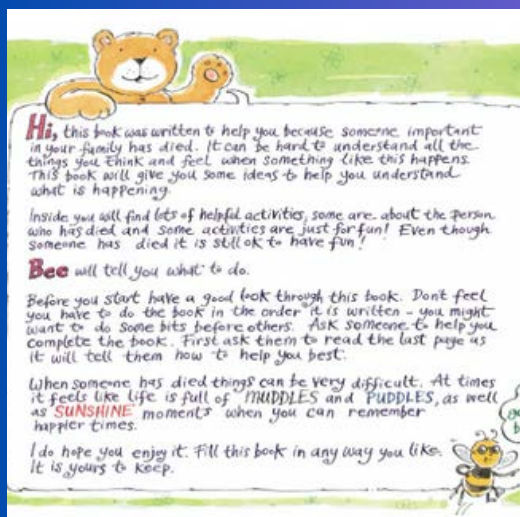 Hi, this book was written to help you because someone important
in your family has died. It can be hard to understand all the
things you think and feel when something like this happens.
This book will give you some ideas to help you understand
what is happening.
Inside you will find lots of helpful activities, some are about the person
who has died and some activities are just for fun! Even though
someone has died it is still ok to have fun!
Bee will tell you what to do.
Before you start have a good look through this book. Don't feel
you have to do the book in the order it is written - you might
want to do some bits before others. Ask someone to help you
complete the book. First ask them to read the last page as
it will tell them how to help you best.
When someone has died things can be very difficult. At times
it feels like life is full of MUDDLES and PUDDLES, as well
as SUNSHINE moments when you can remember
happier times.
I do hope you enjoy it. Fill this book in any way you like.
It is yours to keep.